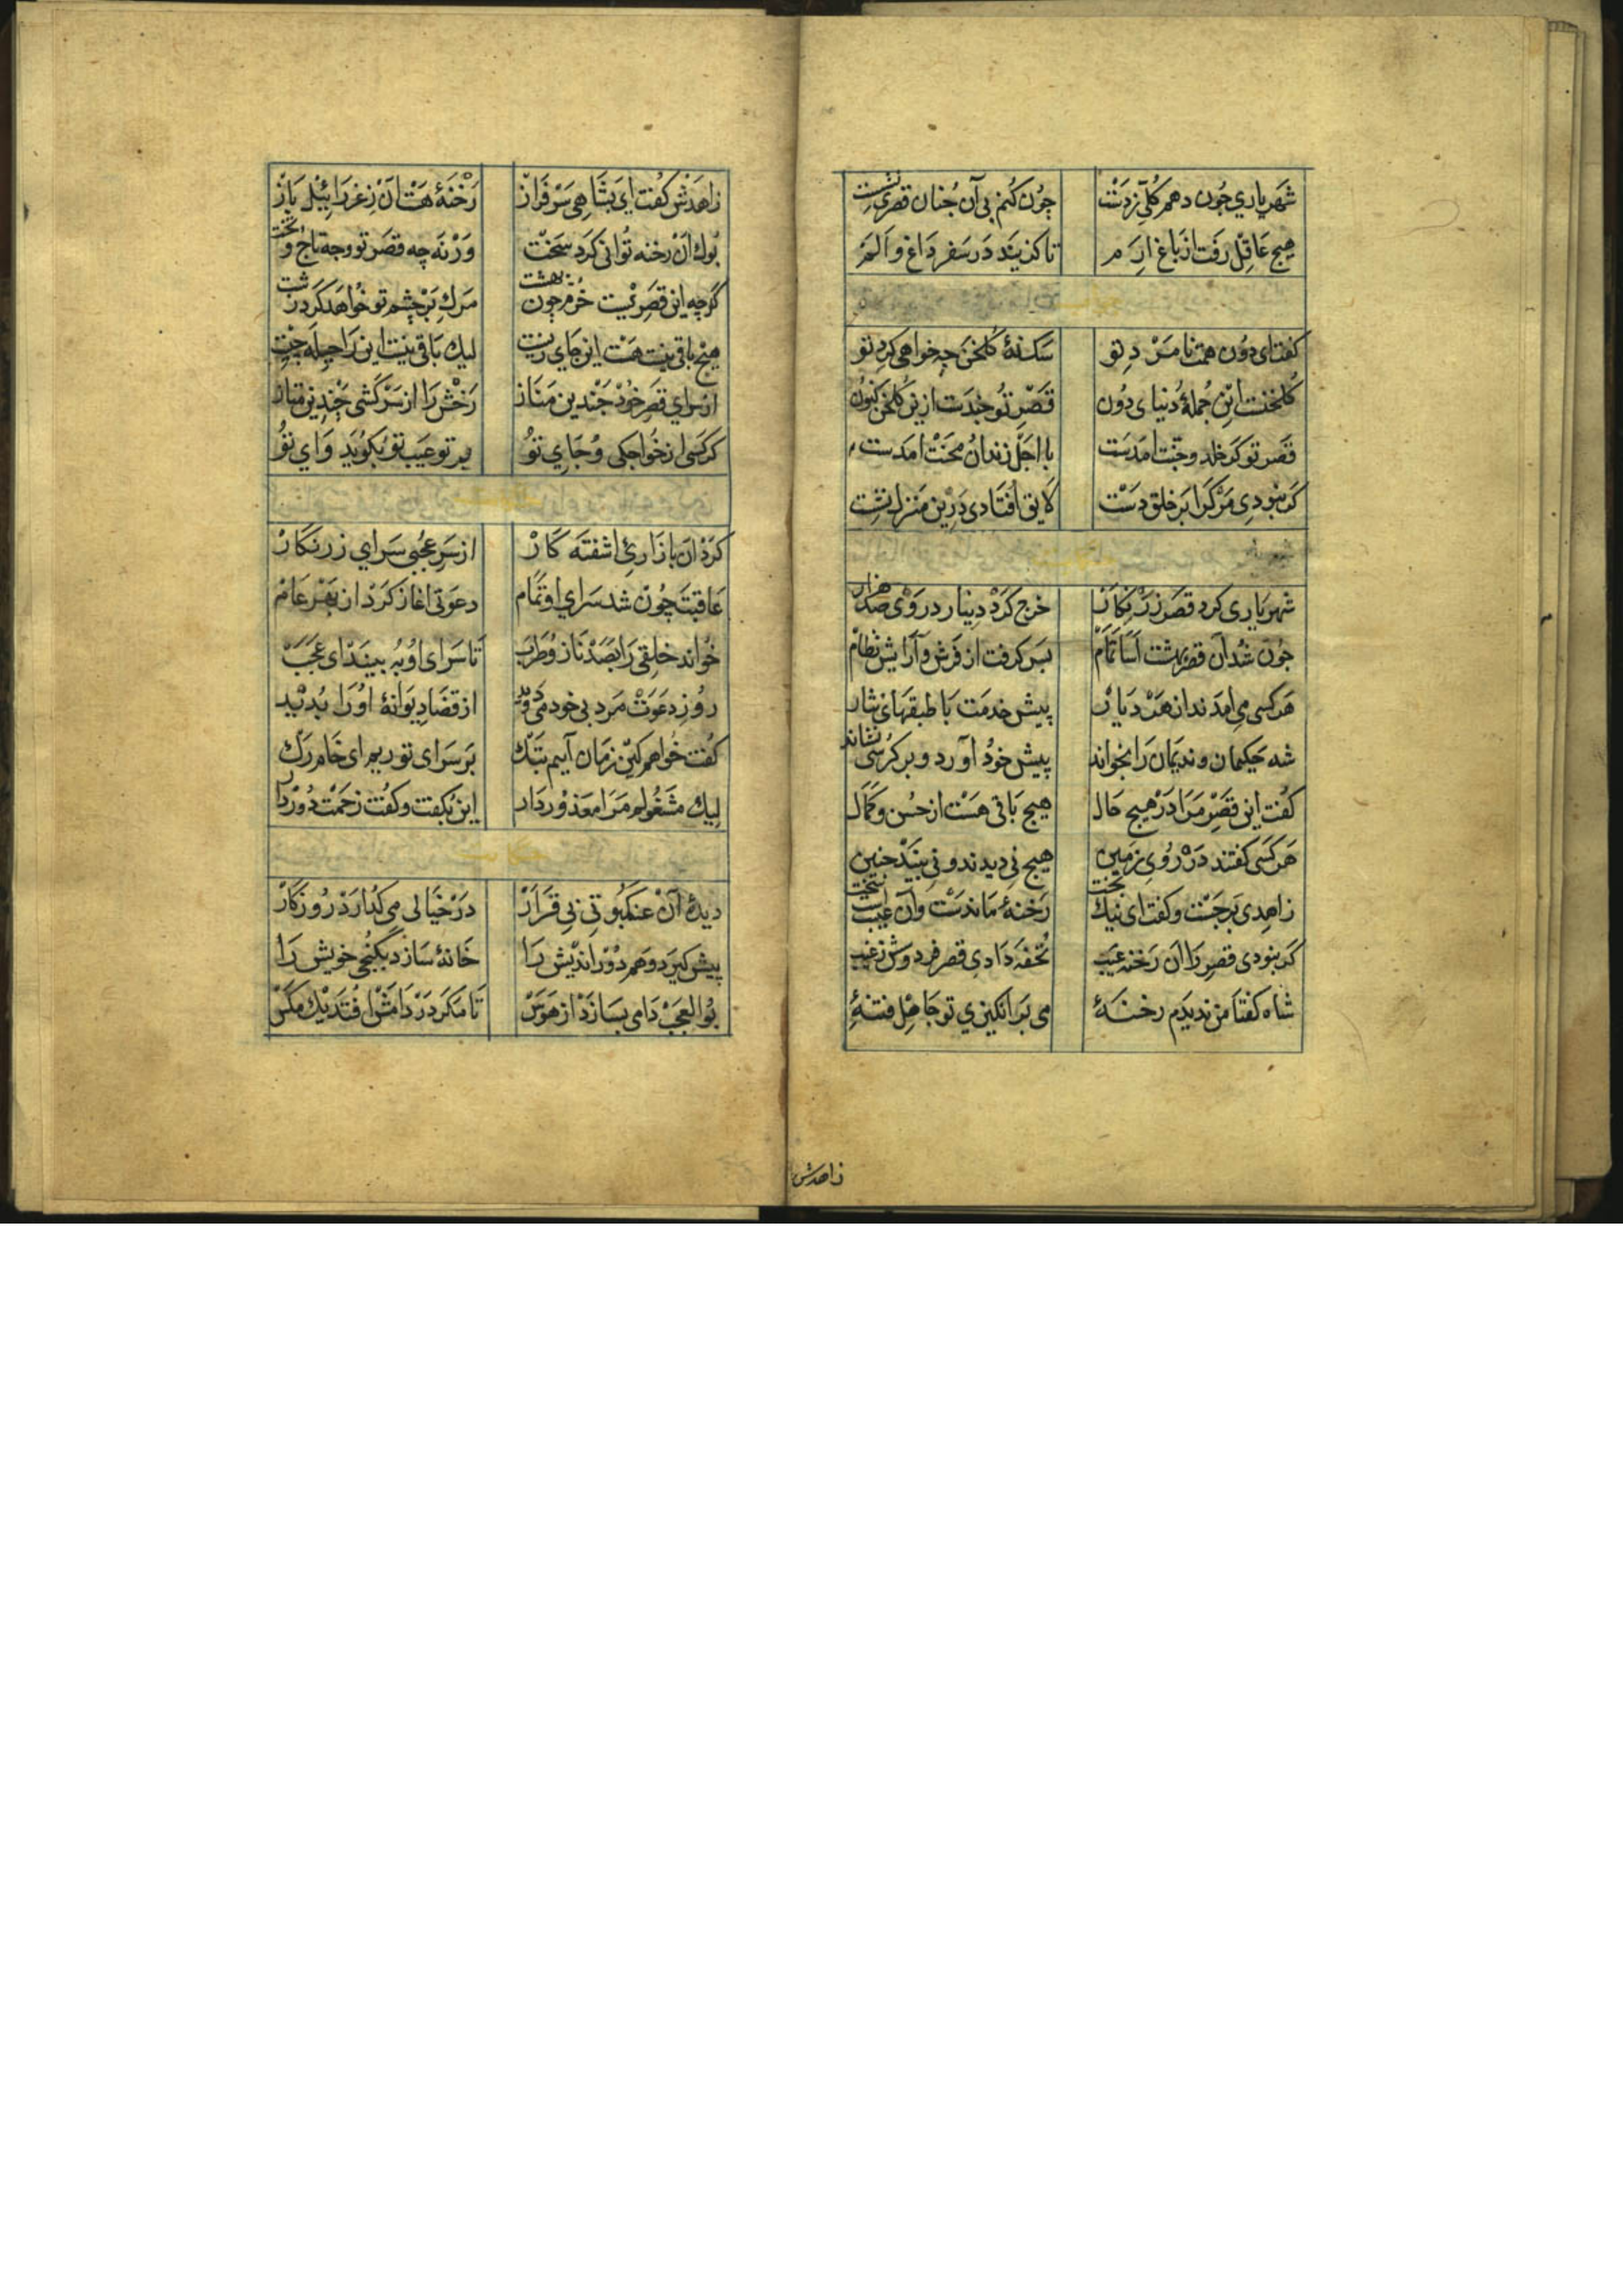 شهریاری چون دهم کلی ز دست چون کنم بی آن چنان قصری نشست
هیچ عاقل رفت از باغ ارم تا کند بیند در سفر داغ و الم
گفت ای دون همت نامرد تو سگ نۀ گلخن چه خواهی کرد تو
گلخنست این جملۀ دنیای دون قصر تو چندست ازین گلخن کنون
قصر تو گر خلد و جنت امدست با اجل زندان محنت امدست
گر نبودی مرگ را بر خلق دست لایق افتادی درین منزل نشست
شهریاری کرد قصر زرنگار خرج کرد دینار در وی صد هزار
چون شد آن قصر بهشت آسا تمام بس گرفت از فرش و آرایش نظام
هر کسی می امدند از هر دیار پیش خدمت با طبقهای نثار
شه حکیمان و ندیمان را بخواند پیش خود آورد و بر کرسی نشاند
گفت این قصر مرا در هیچ حال هیچ باقی هست از حسن و کمال
هر کسی گفتند در روی زمین هیچ نی دیدند و نی بیند چنین
زاهدی برجست و گفت ای نیک بخت رخنۀ ماندست و آن عیب است سخت
گر نبودی قصر را آن رخنه عیب تحفه دادی قصر فردوش ز غیب
شاه گفتا من ندیدم رخنۀ می برانگیزی تو جاهل فتنۀ
زاهدش
زاهدش گفت ای بشاهی سرفراز رخنۀ هست آن ز عزرائیل باز
بوک آن رخنه توانی کرد سخت ورنه چه قصر تو و چه تاج و تخت
گرچه این قصریست خرم چون بهشت مرگ بر چشم تو خواهد کرد زشت
هیچ باقی نیست هست این جای زیست لیک باقی نیست این را حیله چیست
از سرای قصر خود چندین مناز رخش را از سرکشی چندین متاز
گر کسی از خواجگی و جای تو بر تو عیب تو بگوید وای تو
کرد آن بازاری اشفته کار از سر عجبی سرای زرنگار
عاقبت چون شد سرای او تمام دعوتی اغاز کرد از بهر عام
خواند خلقی را بصد ناز و طرب تا سرای او به بینند ای عجب
روز دعوت مرد بی خود می دوید از قضا دیوانۀ او را بدید
گفت خواهم کین زمان آیم بتک بر سرای تو ریم ای خام رک
لیک مشغولم مرا معذور دار این بگفت و گفت زحمت دور دار
دیدۀ آن عنکبوتی بی قرار در خیالی می گذارد روزگار
پیش گیرد وهم دور اندیش را خانۀ سازد بکنجی خویش را
بوالعجب دامی بسازد از هوس تا مگر در دامش افتد یک مگس